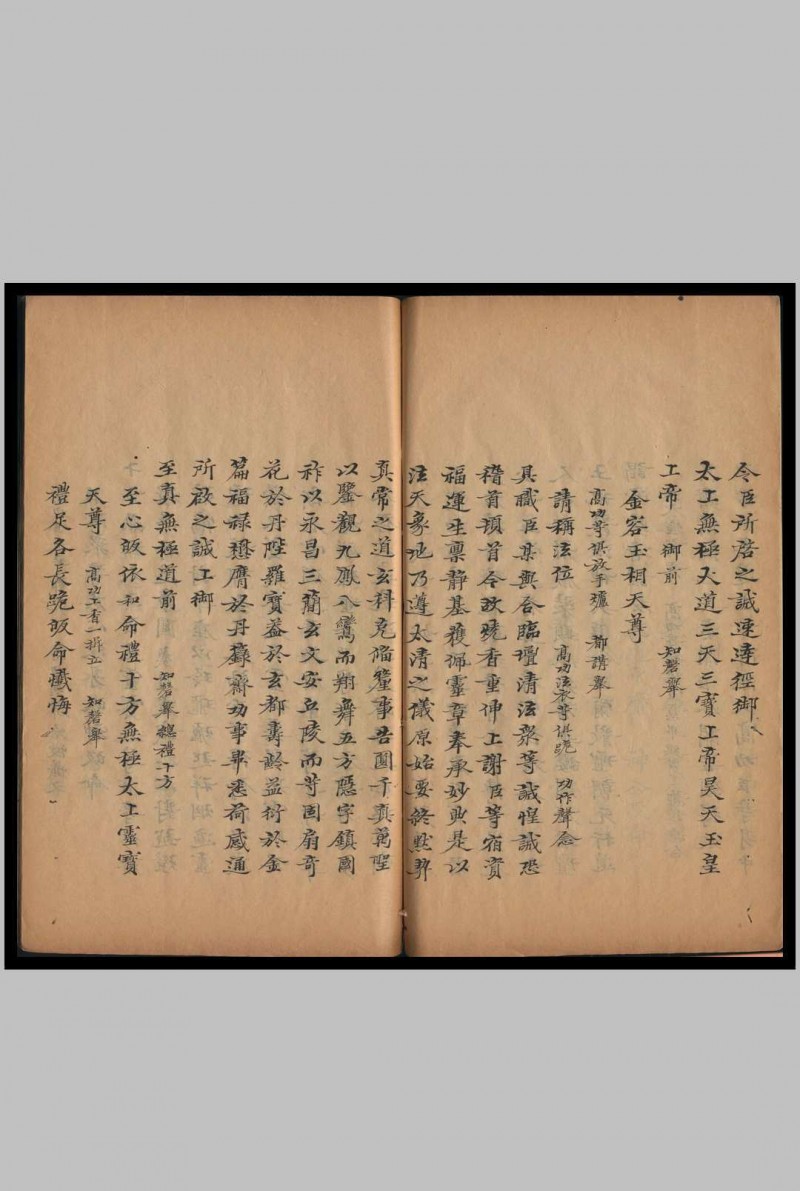 令臣所啓之誠速達徑御
太上無極大道三天三寶上帝昊天玉皇
上帝 御前 知磬舉
金容玉相天尊
高功等俱放手爐 都講舉
請稱法位 高功法衆等俱跪 功作聲念
具職臣某與合臨壇清法衆等誠惶誠恐
稽首頓首今啟曉香重伸上謝臣等宿資
福運生稟靜基獲佩靈章奉承妙典是以
注天象地乃遵太清之儀原始要終默契
真常之道玄科克備釐事告圓千真萬聖
以鑒觀九鳳八鸞而翔舞五方隱字鎮國
祚以永昌三簡玄文安丘陵而等固扇奇
花於丹陛羅寶蓋於玄都壽齡益衍於金
篇福祿懋膺於丹籙齋功事畢悉荷感通
所啟之誠上御
至真無極道前 知磬舉總禮十方
至心皈依和命禮十方無極太上靈寶
天尊 高功上香一拆立 知磬舉
禮足各長跪皈命懺悔